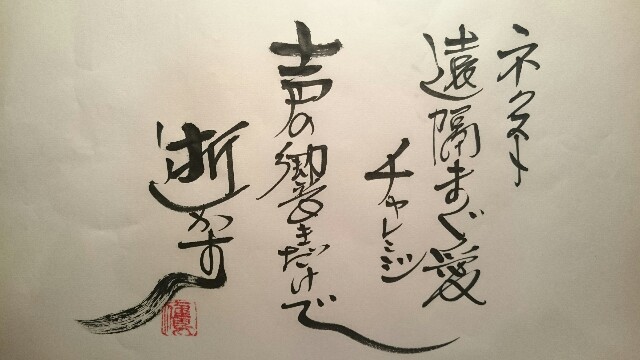 ネクスト
遠隔まぐ愛
チャレンジ
声の響きだけで
逝かす